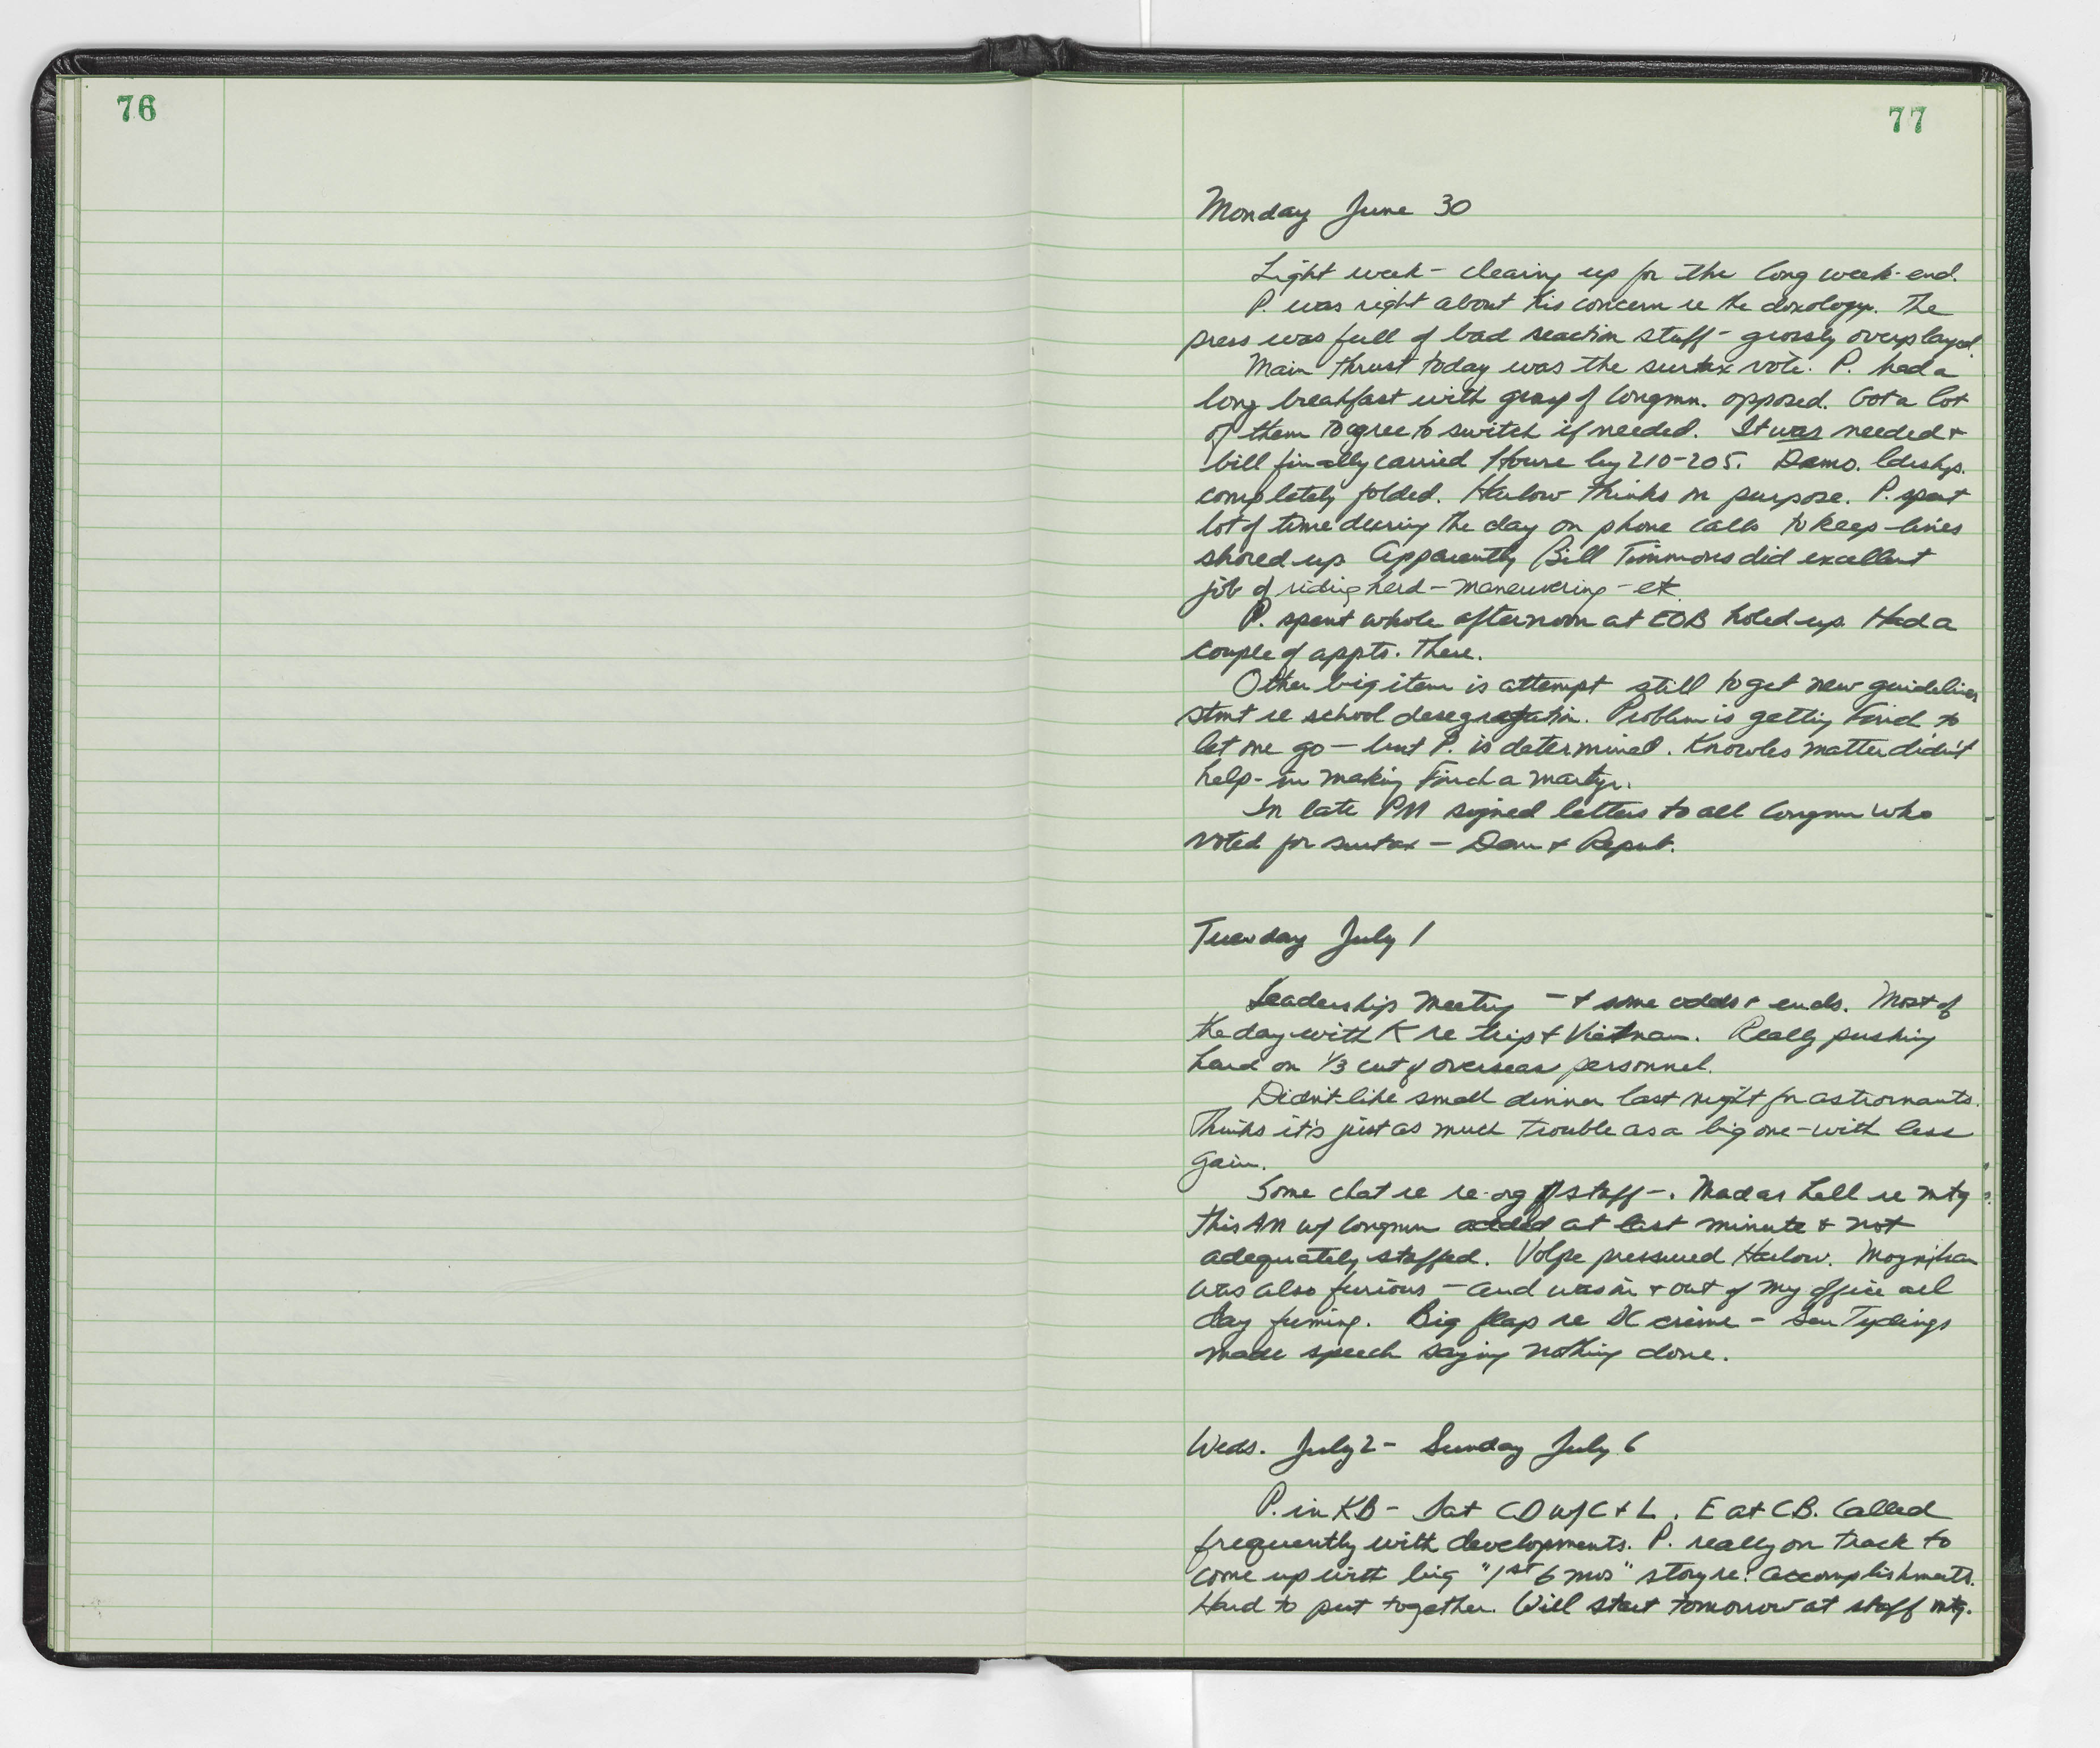 76
77
Monday June 30
Light week - clearing up for the long week-end.
P. was right about his concern re the doxology. The
press was full of bad reaction stuff - grossly overplayed.
Main thrust today was the surtax vote. P. had a
long breakfast with group of Congmn. opposed. Got a lot
of them to agree to switch if needed. It was needed +
bill finally carried House by 210-205. Demo. ldrshp.
completely folded. Harlow thinks on purpose. P. spent
lot of time during the day on phone calls to keep lines
shored up. Apparently Bill Timmons did excellent
job of riding herd - maneuvering - etc.
P. spent whole afternoon at EOB holed up. Had a
couple of appts. there.
Other big item is attempt still to get new guidelines
stmt re school desegregation. Problem is getting Finch to
let one go - but P. is determined. Knowles matter didn't
help - in making Finch a martyr.
In late PM signed letters to all Congmn who
voted for surtax - Dem + Repub.
Tuesday July 1
Leadership meeting - + some odds + ends. Most of
the day with K re trip + Vietnam. Really pushing
hard on 1/3 cut of overseas personnel.
Didn't like small dinner last night for astronauts.
Thinks it's just as much trouble as a big one - with less
gain.
Some chat re re-org of staff -. Mad as hell re mtg
this AM w/ Congmn added at last minute & not
adequately staffed. Volpe pressured Harlow. Moynihan
was also furious - and was in + out of my office all
day fuming. Big flap re DC crime - Sen Tydings
made speech saying nothing done.
Weds. July 2 - Sunday July 6
P. in KB - Sat CD w/ C + L. E at CB. Called
frequently with developments. P. really on track to
come up with big "1st 6 mos" story re: accomplishments.
Hard to put together. Will start tomorrow at staff mtg.